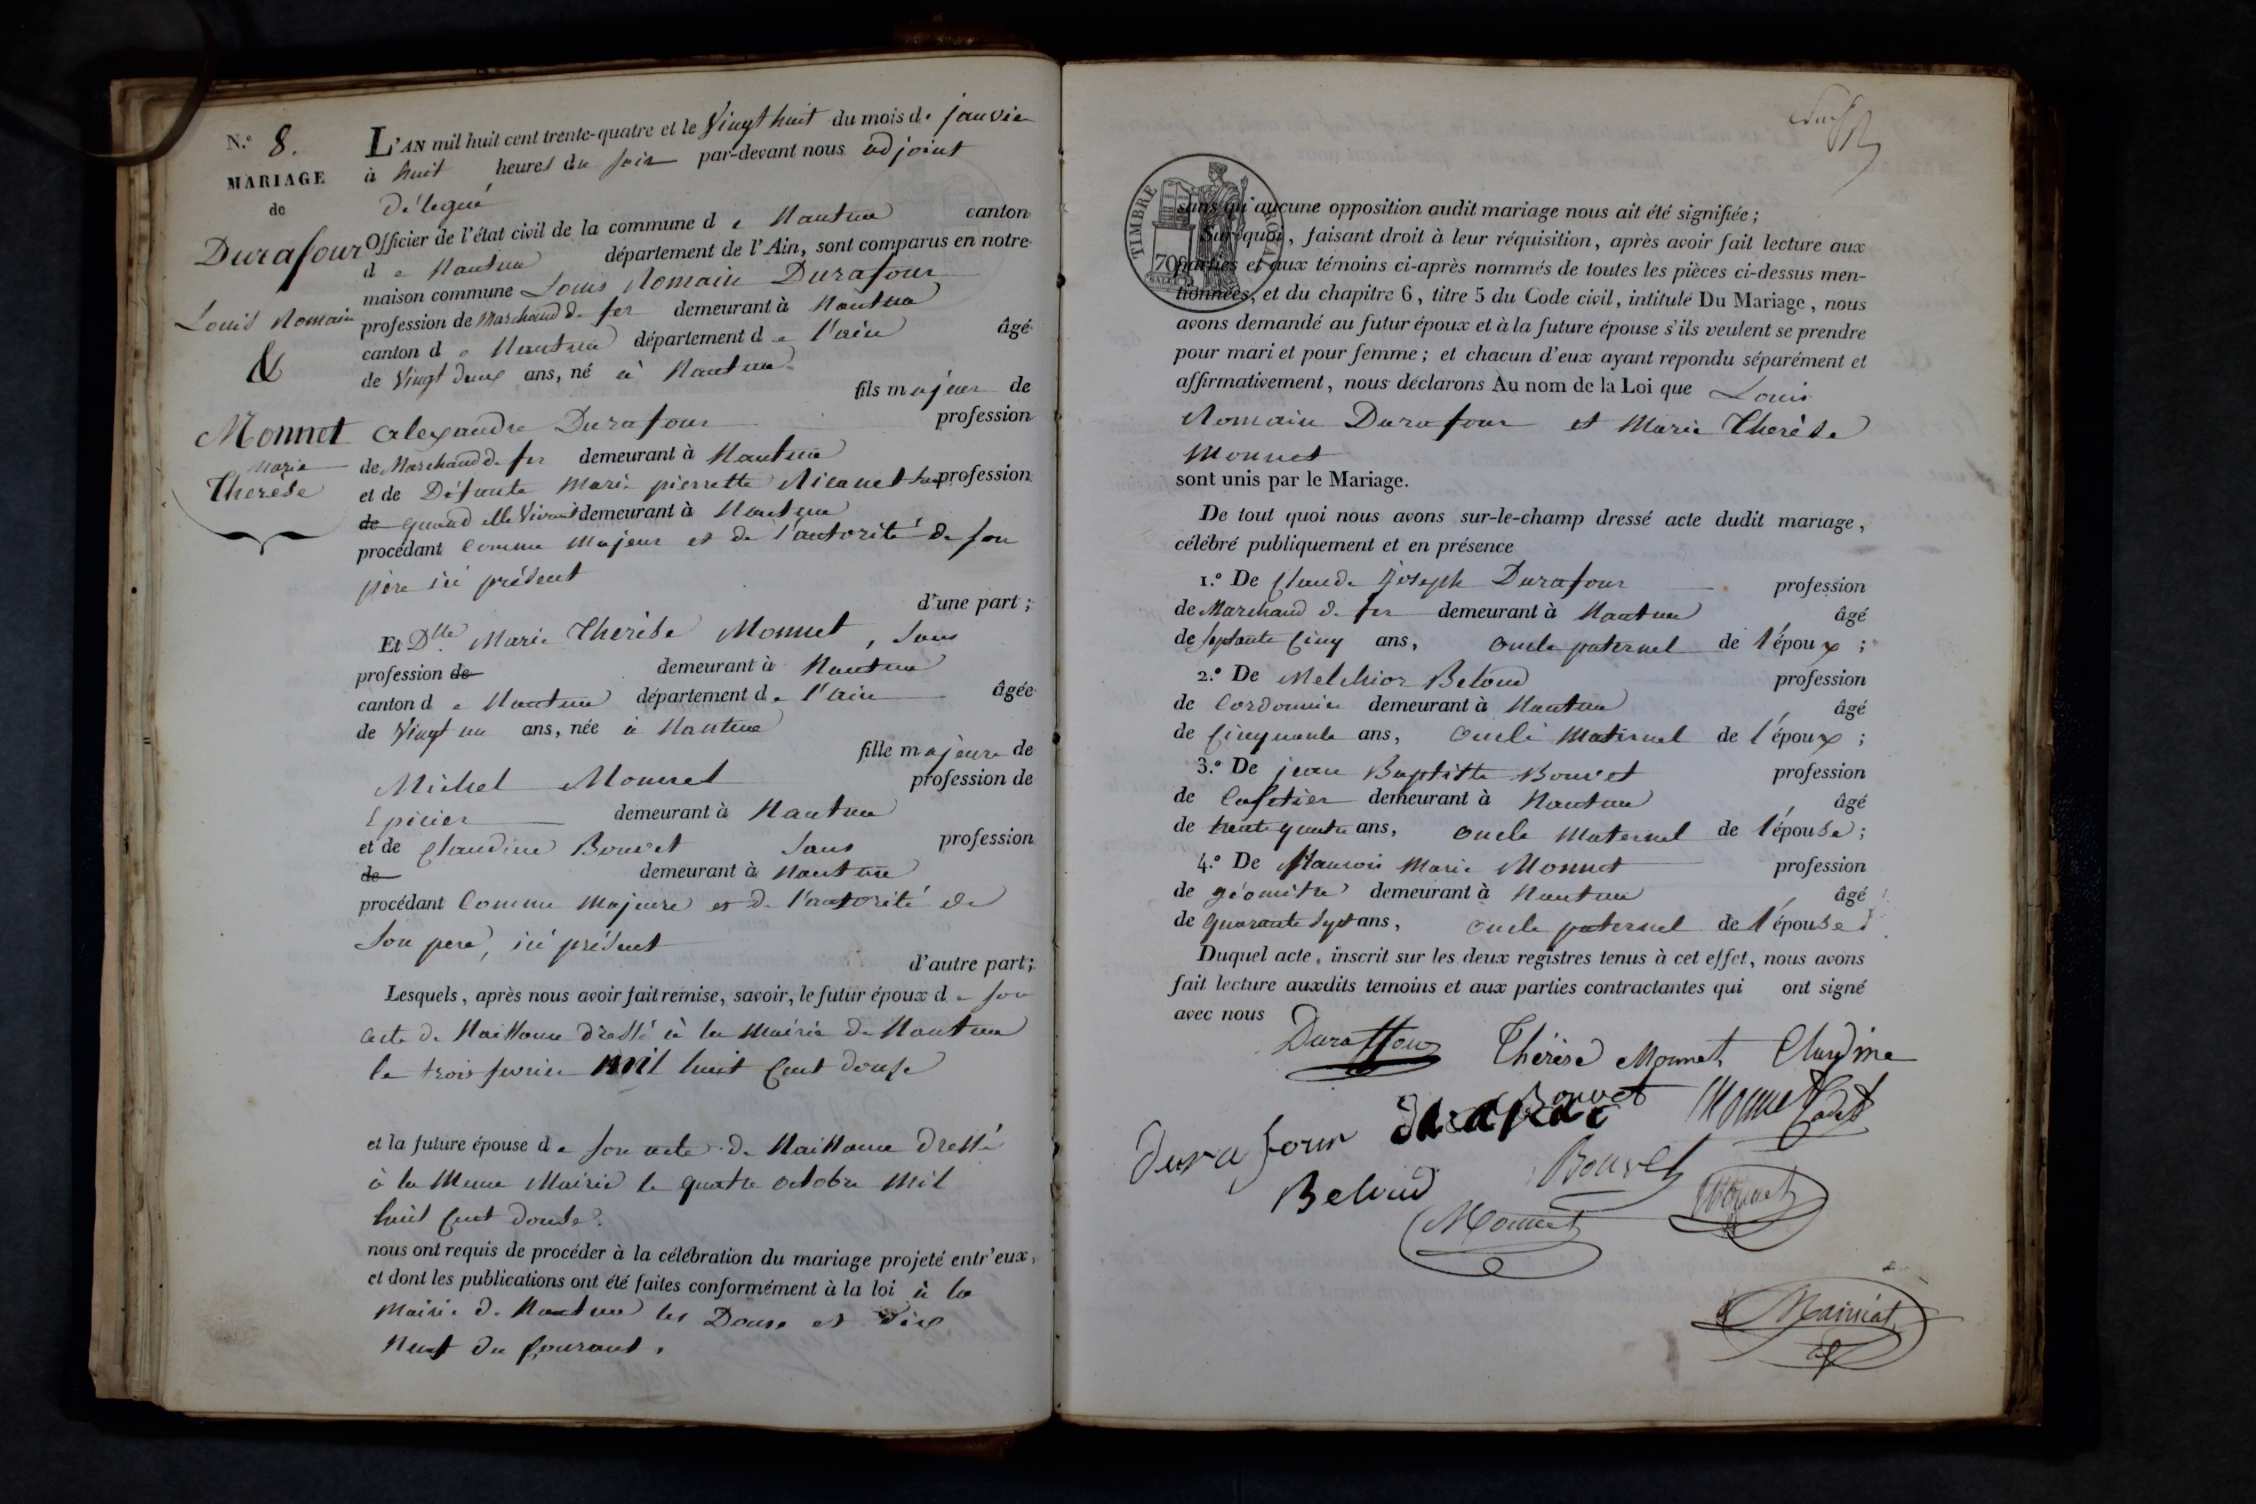 N.º 8.
MARIAGE
de
Durafour
Louis Romain
&
Monnet
Marie
Therèse
L'AN mil huit cent trente-quatre et le Vingt huit du mois de janvier
à huit heures du soir par-devant nous adjoint
délégué
Officier de l'état civil de la commune d e Nantua canton
d e Nantua département de l'Ain, sont comparus en notre
maison commune Louis Romain Durafour
profession de Marchand de fer demeurant à Nantua
canton d e Nantua département d e l'ain âgé
de Vingt deux ans, né à Nantua
fils majeur de
alexandre Durafour profession
de Marchand de fer demeurant à Nantua
et de Défunte Marie pierrette profession
de quand elle Vivait demeurant à Nantua
procédant Comme Majeur et de l'autorité de son
père ici présent
d'une part ;
Et Dlle Marie Therèse Monnet, Sans
profession de demeurant à Nantua
canton d e Nantua département d e l'ain âgée
de Vingt un ans, née à Nantua
fille majeure de
Michel Monnet profession de
Epicier demeurant à Nantua
et de Claudine Bouvet Sans profession
de demeurant à Nantua
procédant Comme Majeure et de l'autorité de
Son pere, ici présent
d'autre part ;
Lesquels, après nous avoir fait remise, savoir, le futur époux d e son
acte de Naissance dressé à la Mairie de Nantua
le trois fevrier mil huit Cent douse
et la future épouse d e son acte de Naissance dressé
à la Meme Mairie le quatre octobre Mil
huit Cent douse
nous ont requis de procéder à la célébration du mariage projeté entr'eux,
et dont les publications ont été faites conformément à la loi à la
Mairie de Nantua les Douse et dix
Neuf du Courant.
TIMBRE ROYAL
70
sans qu'aucune opposition audit mariage nous ait été signifiée ;
Sur quoi, faisant droit à leur réquisition, après avoir fait lecture aux
parties et aux témoins ci-après nommés de toutes les pièces ci-dessus men-
tionnées, et du chapitre 6, titre 5 du Code civil, intitulé Du Mariage, nous
avons demandé au futur époux et à la future épouse s'ils veulent se prendre
pour mari et pour femme ; et chacun d'eux ayant repondu séparément et
affirmativement, nous déclarons Au nom de la Loi que Louis
Romain Durafour et Marie Therèse
Monnet
sont unis par le Mariage.
De tout quoi nous avons sur-le-champ dressé acte dudit mariage,
célébré publiquement et en présence
1.º De Claude Joseph Durafour profession
de Marchand de fer demeurant à Nantua âgé
de Septante Cinq ans, oncle paternel de l'époux ;
2.º De Melchior Beloud profession
de Cordonnier demeurant à Nantua âgé
de Cinquante ans, oncle Maternel de l'époux ;
3.º De jean Baptiste Bouvet profession
de Cafetier demeurant à Nantua âgé
de trente quatre ans, oncle Maternel de l'épouse ;
4.º De francois Marie Monnet profession
de géomètre demeurant à Nantua âgé
de quarante Sept ans, oncle paternel de l'épouse
Duquel acte, inscrit sur les deux registres tenus à cet effet, nous avons
fait lecture auxdits temoins et aux parties contractantes qui ont signé
avec nous
Duraffour Thérèse Monnet Claudine
Bouvet Monnet Cadet
durafour
Beloud Bouvet Monnet
Monnet
Mainiat